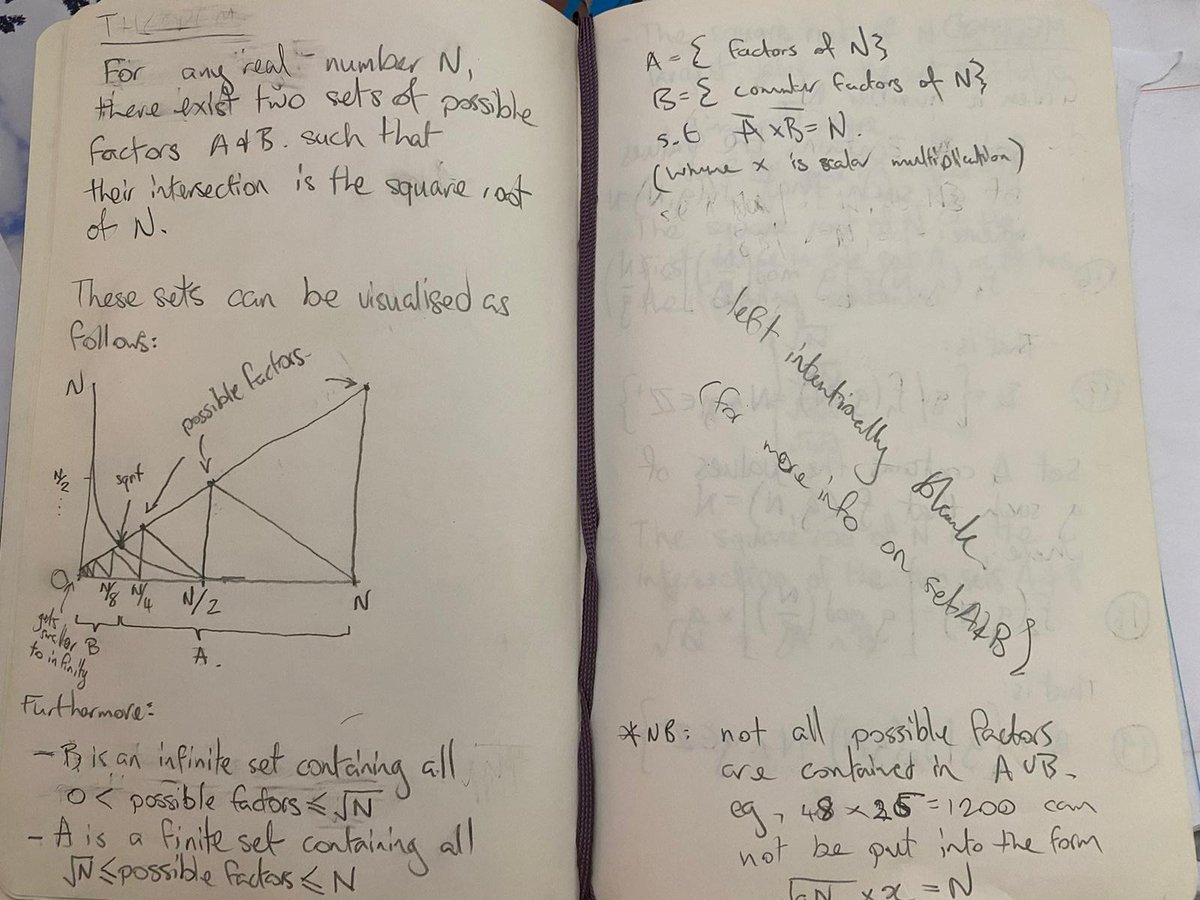 THEOREM
For any real number N,
there exist two sets of possible
factors A & B. such that
their intersection is the square root
of N.
These sets can be visualised as
follows:
possible factors
N
N/2
...
sqrt
O
N/8
N/4
N/2
N
gets
smaller
to infinity
B
A.
Furthermore:
- B is an infinite set containing all
0 < possible factors ≤ √N
- A is a finite set containing all
√N ≤ possible factors ≤ N
A = { factors of N}
B = { counter factors of N}
s.t A × B = N.
(where × is scalar multiplication)
left intentionally blank
(for more info on set A & B}
*NB: not all possible factors
are contained in A ∪ B.
eg, 48 × 25 = 1200 can
not be put into the form
× x = N